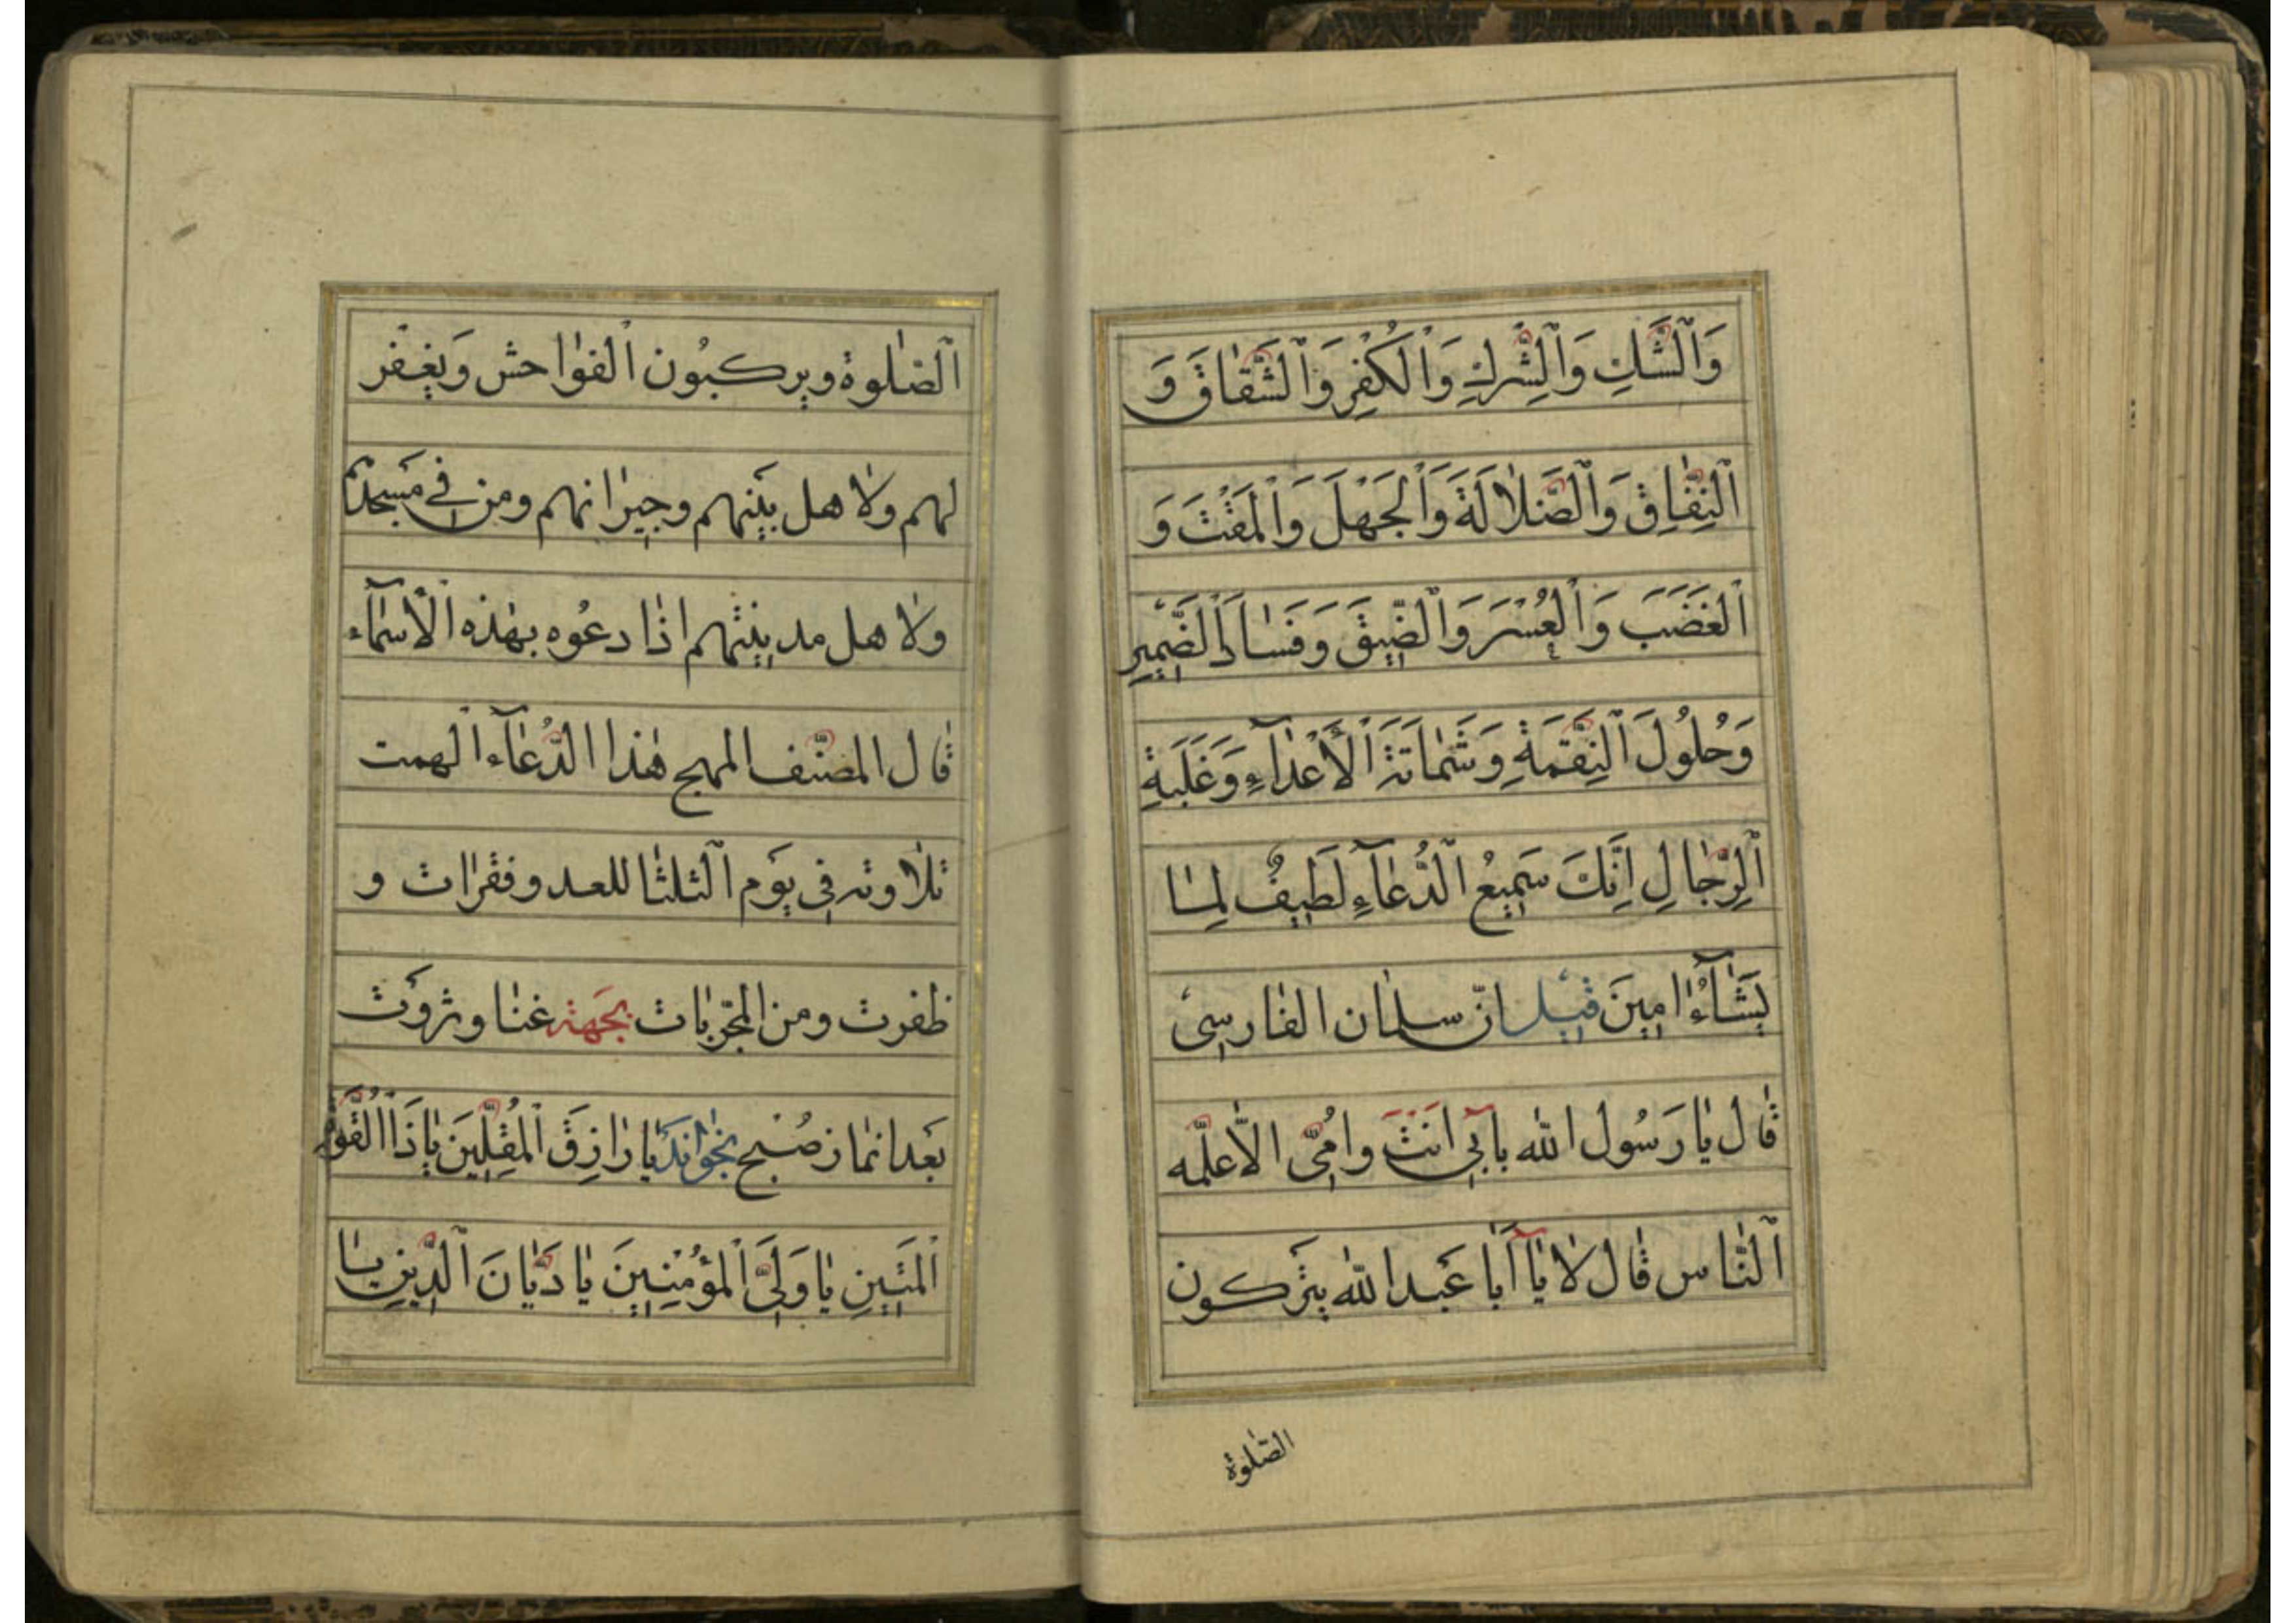 وَالشَّكِ وَالشِّركِ وَالْكُفِْرِ وَالشَّقٰاقَ وَ
النِفّٰاِقِ وَالضَّلاٰلَةَ وَالْجَهْلَ وَالْمَقْتَ وَ
الْغَضَبَ وَالْعُِسْرَ وَالضّٖيقَ وَفَسٰادَ الضَّمٖيرِ
وَحُلُولَ النِّقِمَةِ وَشَمٰاتَةَ الْأَعْدٰآءِ وَغَلَبَةِ
الرِّجٰالِ اِنَّكَ سَمٖيعُ الدُّعٰآءِ لَطٖيفٌ لِمٰا
يَشٰآءُ اٰمٖينَ قٖيل انّ سلمٰان الفٰارسِى
قٰال يٰا رَسُول الله بابٖى انَتَ وامُّٖى الاّ اعلّمه
النّٰاس قٰال لاٰ يٰا أَبٰا عَبد الله يتَركون
الصّلوة
الصّلٰوة ويرٖكبُون الفوٰاحش وَيغٖفر
لهم ولاٰهل بيَتٖهم وجيرٖانهم ومن فى مَسجد
ولاٰهل مدينٖتهم اذٰا دعُوه بهٰذه الْاسمٰآء
قٰال المصنّف المهج هٰذا الدُّعٰآء الهمت
تلاٰوته فٖى يوَم الثلثٰا للعدو فقرٰات و
ظفرت ومن المجرّبٰات بجَهة غنٰا وثروَت
بعَد انمٰاز صُبح بخوٰانَد يٰا رٰازِقَ الْمُقِلّٖينَ يٰا ذَا الْقُوَّةِ
الْمَتٖينِ يٰا وَلِىَّ الْمُؤْمِنٖينَ يٰا دَيّٰانَ الدّٖينِ يٰا